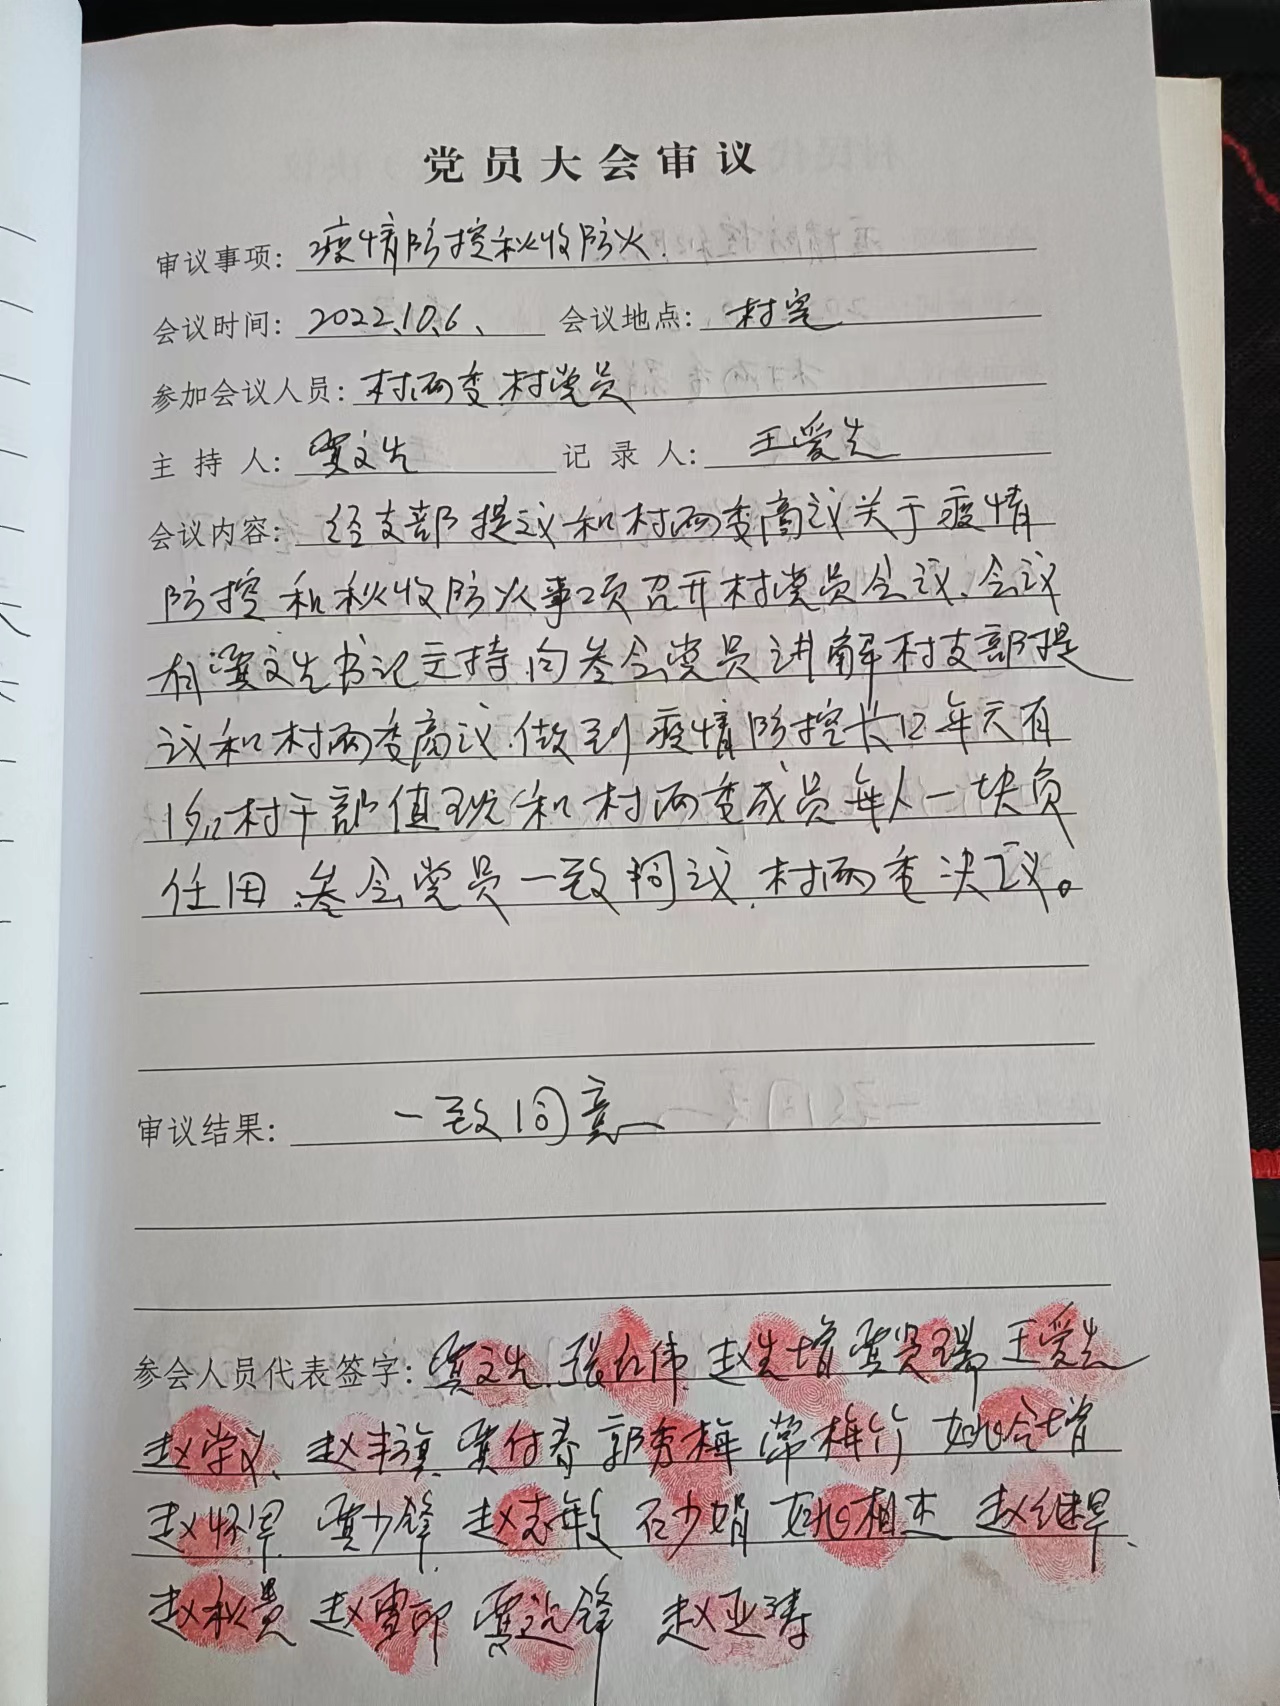 党员大会审议
审议事项: 疫情防控秋收防火.
会议时间: 2022.10.6、 会议地点: 村室
参加会议人员: 村两委 村党员
主持人: 贾文先 记录人: 王爱先
会议内容: 经支部提议和村两委商议关于疫情
防控和秋收防火事项召开村党员会议、会议
有贾文先书记主持,向参会党员讲解村支部提
议和村两委商议.做到疫情防控长口每天有
1名村干部值班和村两委成员每人一块负
任田.参会党员一致同议.村两委决议。
审议结果: 一致同意
参会人员代表签字: 贾文先 张红伟 赵先增 贾贤瑞 王爱先
赵学义、赵丰旗 贾付春 郭秀梅 常梅竹 姚会增
赵怀旱 贾少锋 赵志敏 石少娟 姚相杰 赵继旱.
赵秋贵 赵雪印 贾锋 赵亚涛